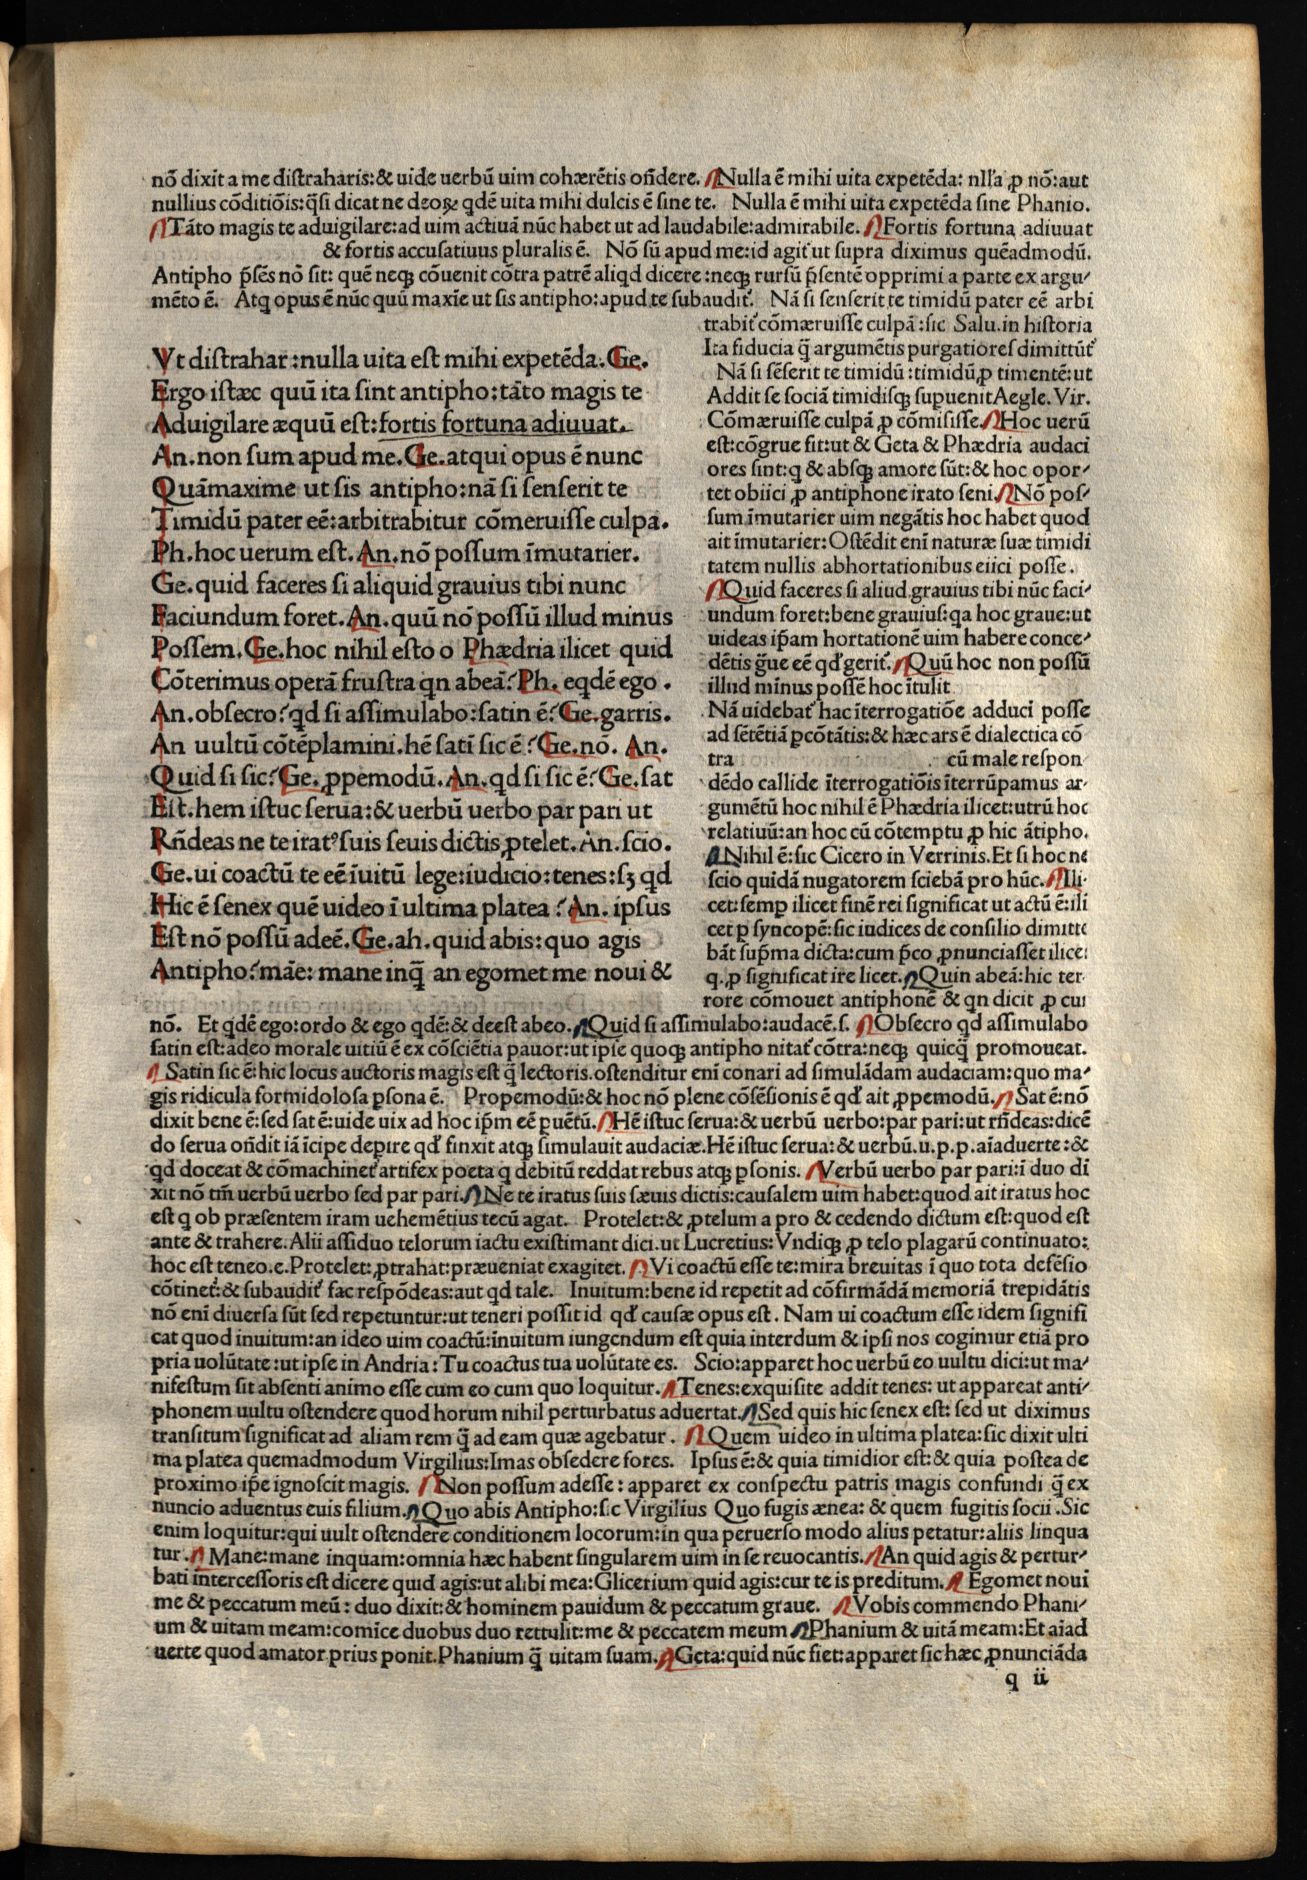 nō dixit a me distraharis:& uide uerbū uim cohærētis on̄dere. Nulla ē mihi uita expetēda: nll'a ꝓ nō:aut
nullius cōditiōis:q̄si dicat ne deoꝝ qdē uita mihi dulcis ē sine te. Nulla ē mihi uita expetēda sine Phanio.
Tāto magis te aduigilare:ad uim actiuā nūc habet ut ad laudabile:admirabile. Fortis fortuna adiuuat
& fortis accusatiuus pluralis ē. Nō sū apud me:id agit̄ ut supra diximus quēadmodū.
Antipho p̄sēs nō sit: quē neqꝫ cōuenit cōtra patrē aliqd dicere:neqꝫ rursū p̄sentē opprimi a parte ex argu-
mēto ē. Atqꝫ opus ē nūc quū maxīe ut sis antipho:apud te subaudit̄. Nā si senserit te timidū pater eē arbi
trabit̄ cōmæruisse culpā:sic Salu.in historia
Ita fiducia q̄ argumētis purgatiores dimittūt̄
Nā si sēserit te timidū:timidū,ꝓ timentē:ut
Addit se sociā timidisqꝫ supuenit Aegle.Vir.
Cōmæruisse culpā,ꝓ cōmisisse. Hoc uerū
est:cōgrue fit:ut & Geta & Phædria audaci
ores sint:q & absqꝫ amore sūt:& hoc opor-
tet obiici,ꝓ antiphone irato seni. Nō pos-
sum īmutarier uim negātis hoc habet quod
ait īmutarier:Ostēdit enī naturæ suæ timidi
tatem nullis abhortationibus eiici posse.
Quid faceres si aliud grauius tibi nūc faci-
undum foret:bene grauius:qa hoc graue:ut
uideas ip̄am hortationē uim habere conce-
dētis g̈ue eē qd' gerit̄. Quū hoc non possū
illud minus possē hoc ītulit
Nā uidebat̄ hac īterrogatiōe adduci posse
ad sētētiā ꝑcōtātis:& hæc ars ē dialectica cō
tra cū male respon
dēdo callide īterrogatiōis īterrūpamus ar-
gumētū hoc nihil ē Phædria ilicet:utrū hoc
relatiuū:an hoc cū cōtemptu,ꝓ hic ātipho.
Nihil ē:sic Cicero in Verrinis.Et si hoc ne
scio quidā nugatorem sciebā pro hūc. Ili-
cet:semꝑ ilicet finē rei significat ut actū ē:ili
cet ꝑ syncopē:sic iudices de consilio dimitte
bāt sup̄ma dicta:cum p̄co,ꝓnunciasset ilice:
q.ꝓ significat ire licet. Quin abeā:hic ter-
rore cōmouet antiphonē & qn dicit,ꝓ cui
Vt distrahar:nulla uita est mihi expetēda. Ge.
Ergo istæc quū ita sint antipho:tāto magis te
Aduigilare æquū est:fortis fortuna adiuuat.
An.non sum apud me.Ge.atqui opus ē nunc
Quāmaxime ut sis antipho:nā si senserit te
Timidū pater eē:arbitrabitur cōmeruisse culpā.
Ph.hoc uerum est.An.nō possum īmutarier.
Ge.quid faceres si aliquid grauius tibi nunc
Faciundum foret.An.quū nō possū illud minus
Possem.Ge.hoc nihil esto o Phædria ilicet quid
Cōterimus operā frustra qn abeā? Ph. eqdē ego.
An.obsecro?qd si assimulabo:satin ē? Ge.garris.
An uultū cōtēplamini.hē satī sic ē? Ge.nō. An.
Quid si sic? Ge.ꝓpemodū. An.qd si sic ē? Ge.sat
Est.hem istuc serua:& uerbū uerbo par pari ut
Rn̄deas ne te iratꝰ suis seuis dictis,ꝓtelet.An.scio.
Ge.ui coactū te eē īuitū lege:iudicio:tenes:sꝫ qd
Hic ē senex quē uideo ī ultima platea? An. ipsus
Est nō possū adeē.Ge.ah.quid abis:quo agis
Antipho?māe: mane inq̄ an egomet me noui &
nō. Et qdē ego:ordo & ego qdē:& deest abeo. Quid si assimulabo:audacē.s. Obsecro qd assimulabo
satin est:adeo morale uitiū ē ex cōsciētia pauor:ut ipse quoqꝫ antipho nitat̄ cōtra:neqꝫ quicq̄ promoueat.
Satin sic ē:hic locus auctoris magis est q̄ lectoris.ostenditur enī conari ad simulādam audaciam:quo ma-
gis ridicula formidolosa ꝑsona ē. Propemodū:& hoc nō plene cōsēsionis ē qd' ait,ꝓpemodū. Sat ē:nō
dixit bene ē:sed sat ē:uide uix ad hoc ip̄m eē ꝑuētū. Hē istuc serua:& uerbū uerbo:par pari:ut rn̄deas:dicē
do serua on̄dit iā īcipe depire qd' finxit atqꝫ simulauit audaciæ.Hē istuc serua:& uerbū.u.p.p.aīaduerte:&
qd' doceat & cōmachinet̄ artifex poeta q debitū reddat rebus atqꝫ ꝑsonis. Verbū uerbo par pari:ī duo di
xit nō tm̄ uerbū uerbo sed par pari. Ne te iratus suis sæuis dictis:causalem uim habet:quod ait iratus hoc
est q ob præsentem iram uehemētius tecū agat. Protelet:& ꝓtelum a pro & cedendo dictum est:quod est
ante & trahere.Alii assiduo telorum iactu existimant dici.ut Lucretius:Vndiqꝫ,ꝓ telo plagarū continuato:
hoc est teneo.e.Protelet:ꝓtrahat:præueniat exagitet. Vi coactū esse te:mira breuitas ī quo tota defēsio
cōtinet̄:& subaudit̄ fac respōdeas:aut qd tale. Inuitum:bene id repetit ad cōfirmādā memoriā trepidātis
nō enī diuersa sūt sed repetuntur:ut teneri possit id qd' causæ opus est. Nam ui coactum esse idem signifi
cat quod inuitum:an ideo uim coactū:īnuitum iungendum est quia interdum & ipsi nos cogimur etiā pro
pria uolūtate:ut ipse in Andria:Tu coactus tua uolūtate es. Scio:apparet hoc uerbū eo uultu dici:ut ma-
nifestum sit absenti animo esse cum eo cum quo loquitur. Tenes:exquisite addit tenes: ut appareat anti-
phonem uultu ostendere quod horum nihil perturbatus aduertat. Sed quis hic senex est: sed ut diximus
transitum significat ad aliam rem q̄ ad eam quæ agebatur. Quem uideo in ultima platea:sic dixit ulti
ma platea quemadmodum Virgilius:Imas obsedere fores. Ipsus ē:& quia timidior est:& quia postea de
proximo ip̄e ignoscit magis. Non possum adesse: apparet ex conspectu patris magis confundi q̄ ex
nuncio aduentus euis filium. Quo abis Antipho:sic Virgilius Quo fugis ænea: & quem fugitis socii.Sic
enim loquitur:qui uult ostendere conditionem locorum:in qua peruerso modo alius petatur:aliis linqua
tur. Mane:mane inquam:omnia hæc habent singularem uim in se reuocantis. An quid agis & pertur-
bati intercessoris est dicere quid agis:ut alibi mea:Glicerium quid agis:cur te is preditum. Egomet noui
me & peccatum meū: duo dixit:& hominem pauidum & peccatum graue. Vobis commendo Phani-
um & uitam meam:comice duobus duo rettulit:me & peccatem meum Phanium & uitā meam:Et aiad
uerte quod amator prius ponit.Phanium q̄ uitam suam. Geta:quid nūc fiet:apparet sic hæc,ꝓnunciāda
q ii